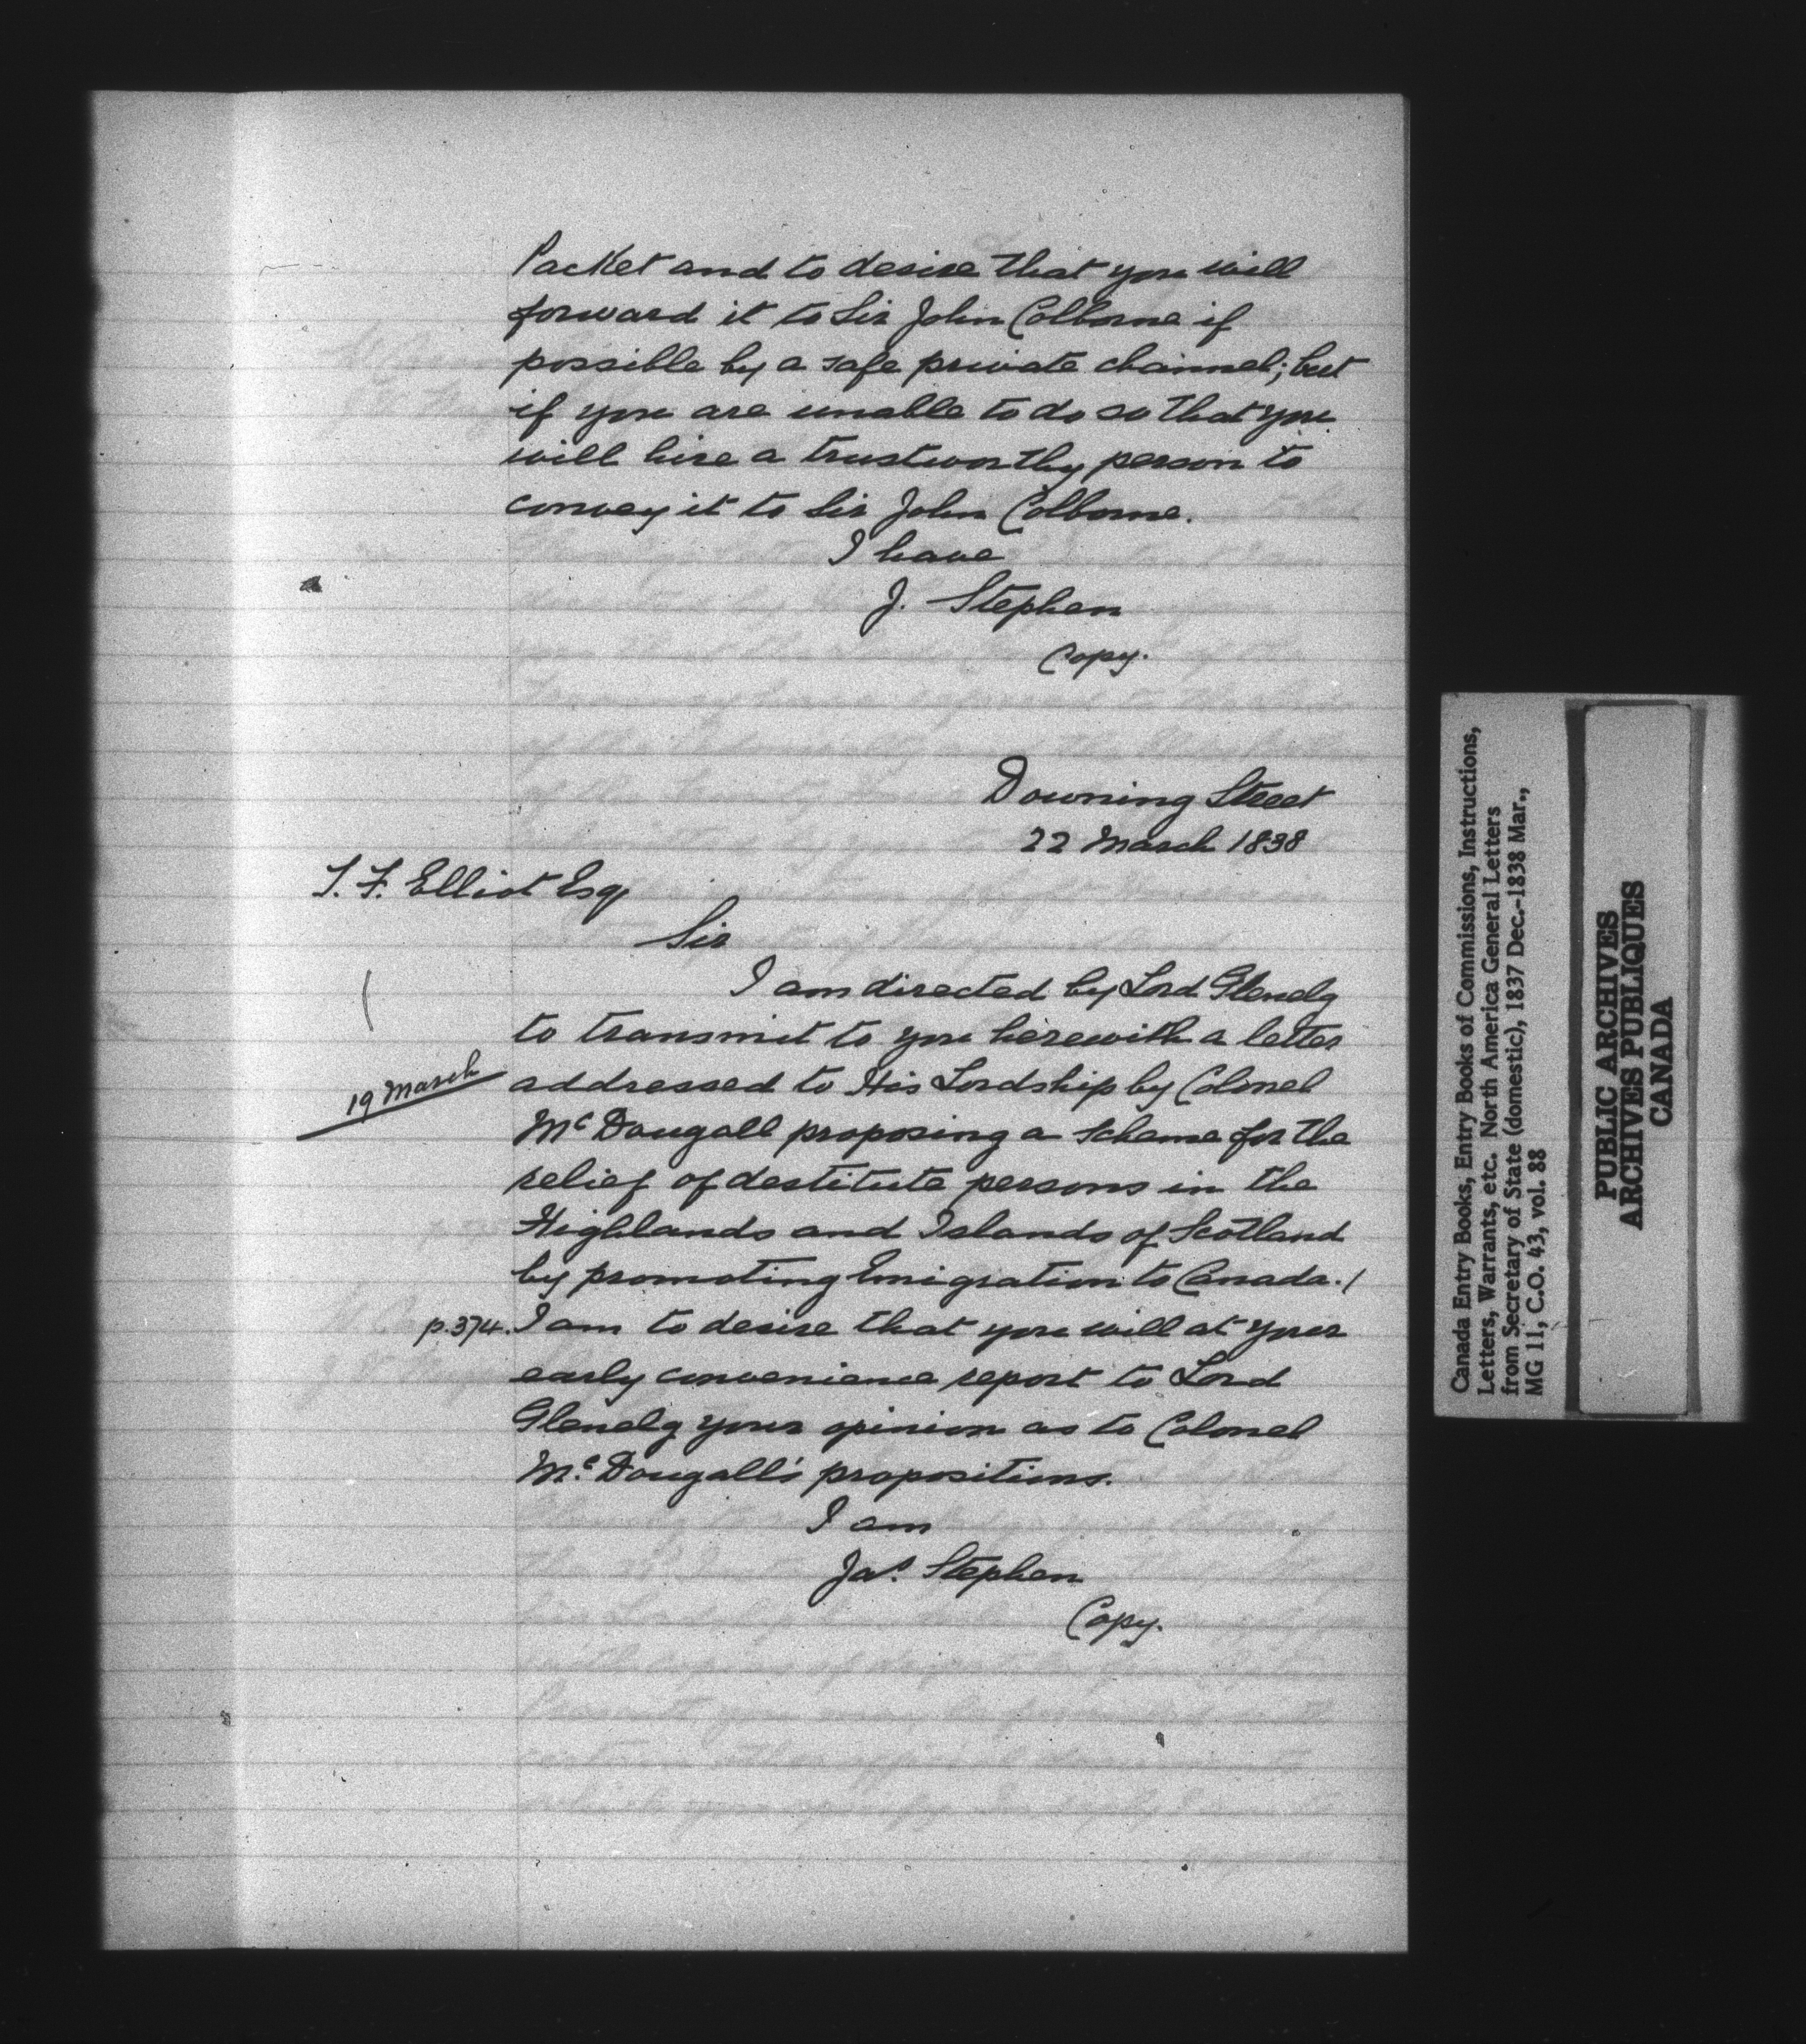 Packet and to desire that you will
forward it to Sir John Colborne if
possible by a safe private channel; but
if you are unable to do so that you
will hire a trustworthy person to
convey it to Sir John Colborne.
I have
J. Stephen
Copy.
Downing Street
22 March 1838
T. F. Elliot Esq
Sir
I am directed by Lord Glenelg
to transmit to you herewith a letter
19 March
addressed to His Lordship by Colonel
Mc Dougall proposing a scheme for the
relief of destitute persons in the
Highlands and Islands of Scotland
by promoting Emigration to Canada. /
p.374. I am to desire that you will at your
early convenience report to Lord
Glenelg your opinion as to Colonel
Mc. Dougall's propositions.
I am
Jas. Stephen
Copy.
Canada Entry Books, Entry Books of Commissions, Instructions,
Letters, Warrants, etc. North America General Letters
from Secretary of State (domestic), 1837 Dec.-1838 Mar.,
MG 11, C.O. 43, vol. 88
PUBLIC ARCHIVES
ARCHIVES PUBLIQUES
CANADA